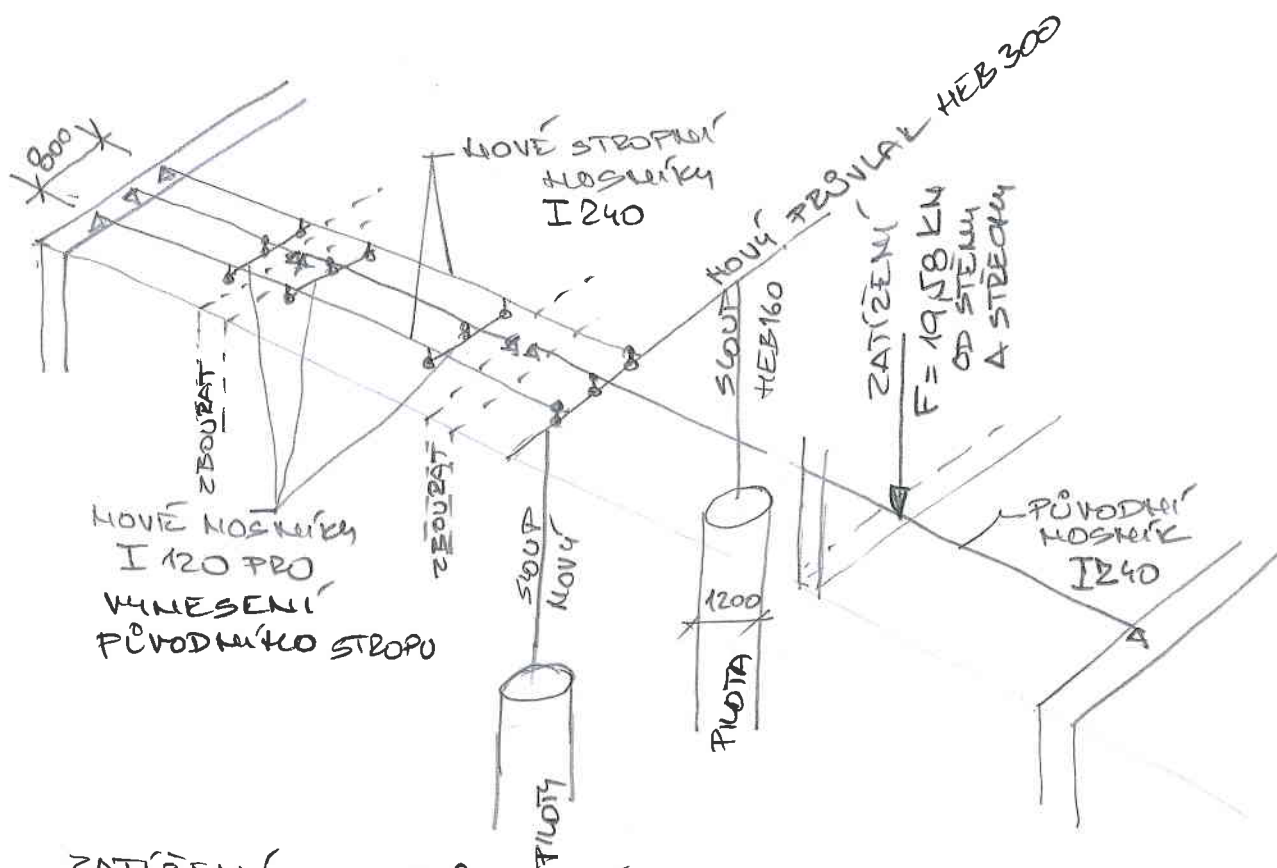 800
NOVÉ STROPNÍ
NOSNÍKY
I 240
NOVÝ PRŮVLAK HEB 300
ZATÍŽENÍ
F = 19,58 KN
OD STĚNY
A STŘECHY
SLOUP
HEB160
ZBOURAT
ZBOURAT
NOVÉ NOSNÍKY
I 120 PRO
VYNESENÍ
PŮVODNÍHO STROPU
SLOUP
NOVÝ
1200
PILOTA
PŮVODNÍ
NOSNÍK
I240
PILOTY
ZATÍŽENÍ